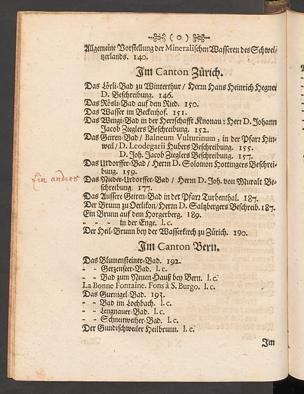 ( 0 )
Allgemeine Vorstellung der Mineralischen Wasseren des Schwei-
tzerlands. 140.
Im Canton Zürich.
Das Lörli-Bad zu Winterthur / Herrn Hans Heinrich Hegner
D. Beschreibung. 146.
Das Rösli-Bad auf dem Ried. 150.
Das Wasser im Beckenhof. 151.
Das Wengi-Bad in der Herrschafft Knonau: Herr D. Johann
Jacob Zieglers Beschreibung. 152.
Das Geiren-Bad / Balneum Vulturinum; in der Pfarr Hin-
weil / D. Leodegarii Hubers Beschreibung. 155.
D. Joh. Jacob Zieglers Beschreibung. 157.
Das Urdorffer-Bad / Herrn D. Salomon Hottingers Beschrei-
bung. 159.
Ein anders
Das Nieder-Urdorffer-Bad / Herrn D. Joh. von Muralt Be-
schreibung. 177.
Das Äussere Geiren-Bad in der Pfarr Turbenthal. 187.
Der Brunn zu Oerlikon / Herrn D. Saltzbergers Beschreib. 187.
Ein Brunn auf dem Horgerberg. 189.
- - - - in der Enge. l. c.
Der Heil-Brunn bey der Wasserkirch zu Zürich. 190.
Im Canton Bern.
Das Blumensteiner-Bad. 192.
- - Gerzenseer-Bad. l. c.
- - Bad zum Neuen-Hauß bey Bern. l. c.
La Bonne Fontaine. Fons à S. Burgo. l. c.
Das Gurnigel-Bad. 193.
- - Bad im Lochbach. l. c.
- - Lengnauer-Bad. l. c.
- - Schnittweiher-Bad. l. c.
Der Gundischweiler Heilbrunn. l. c.
Im